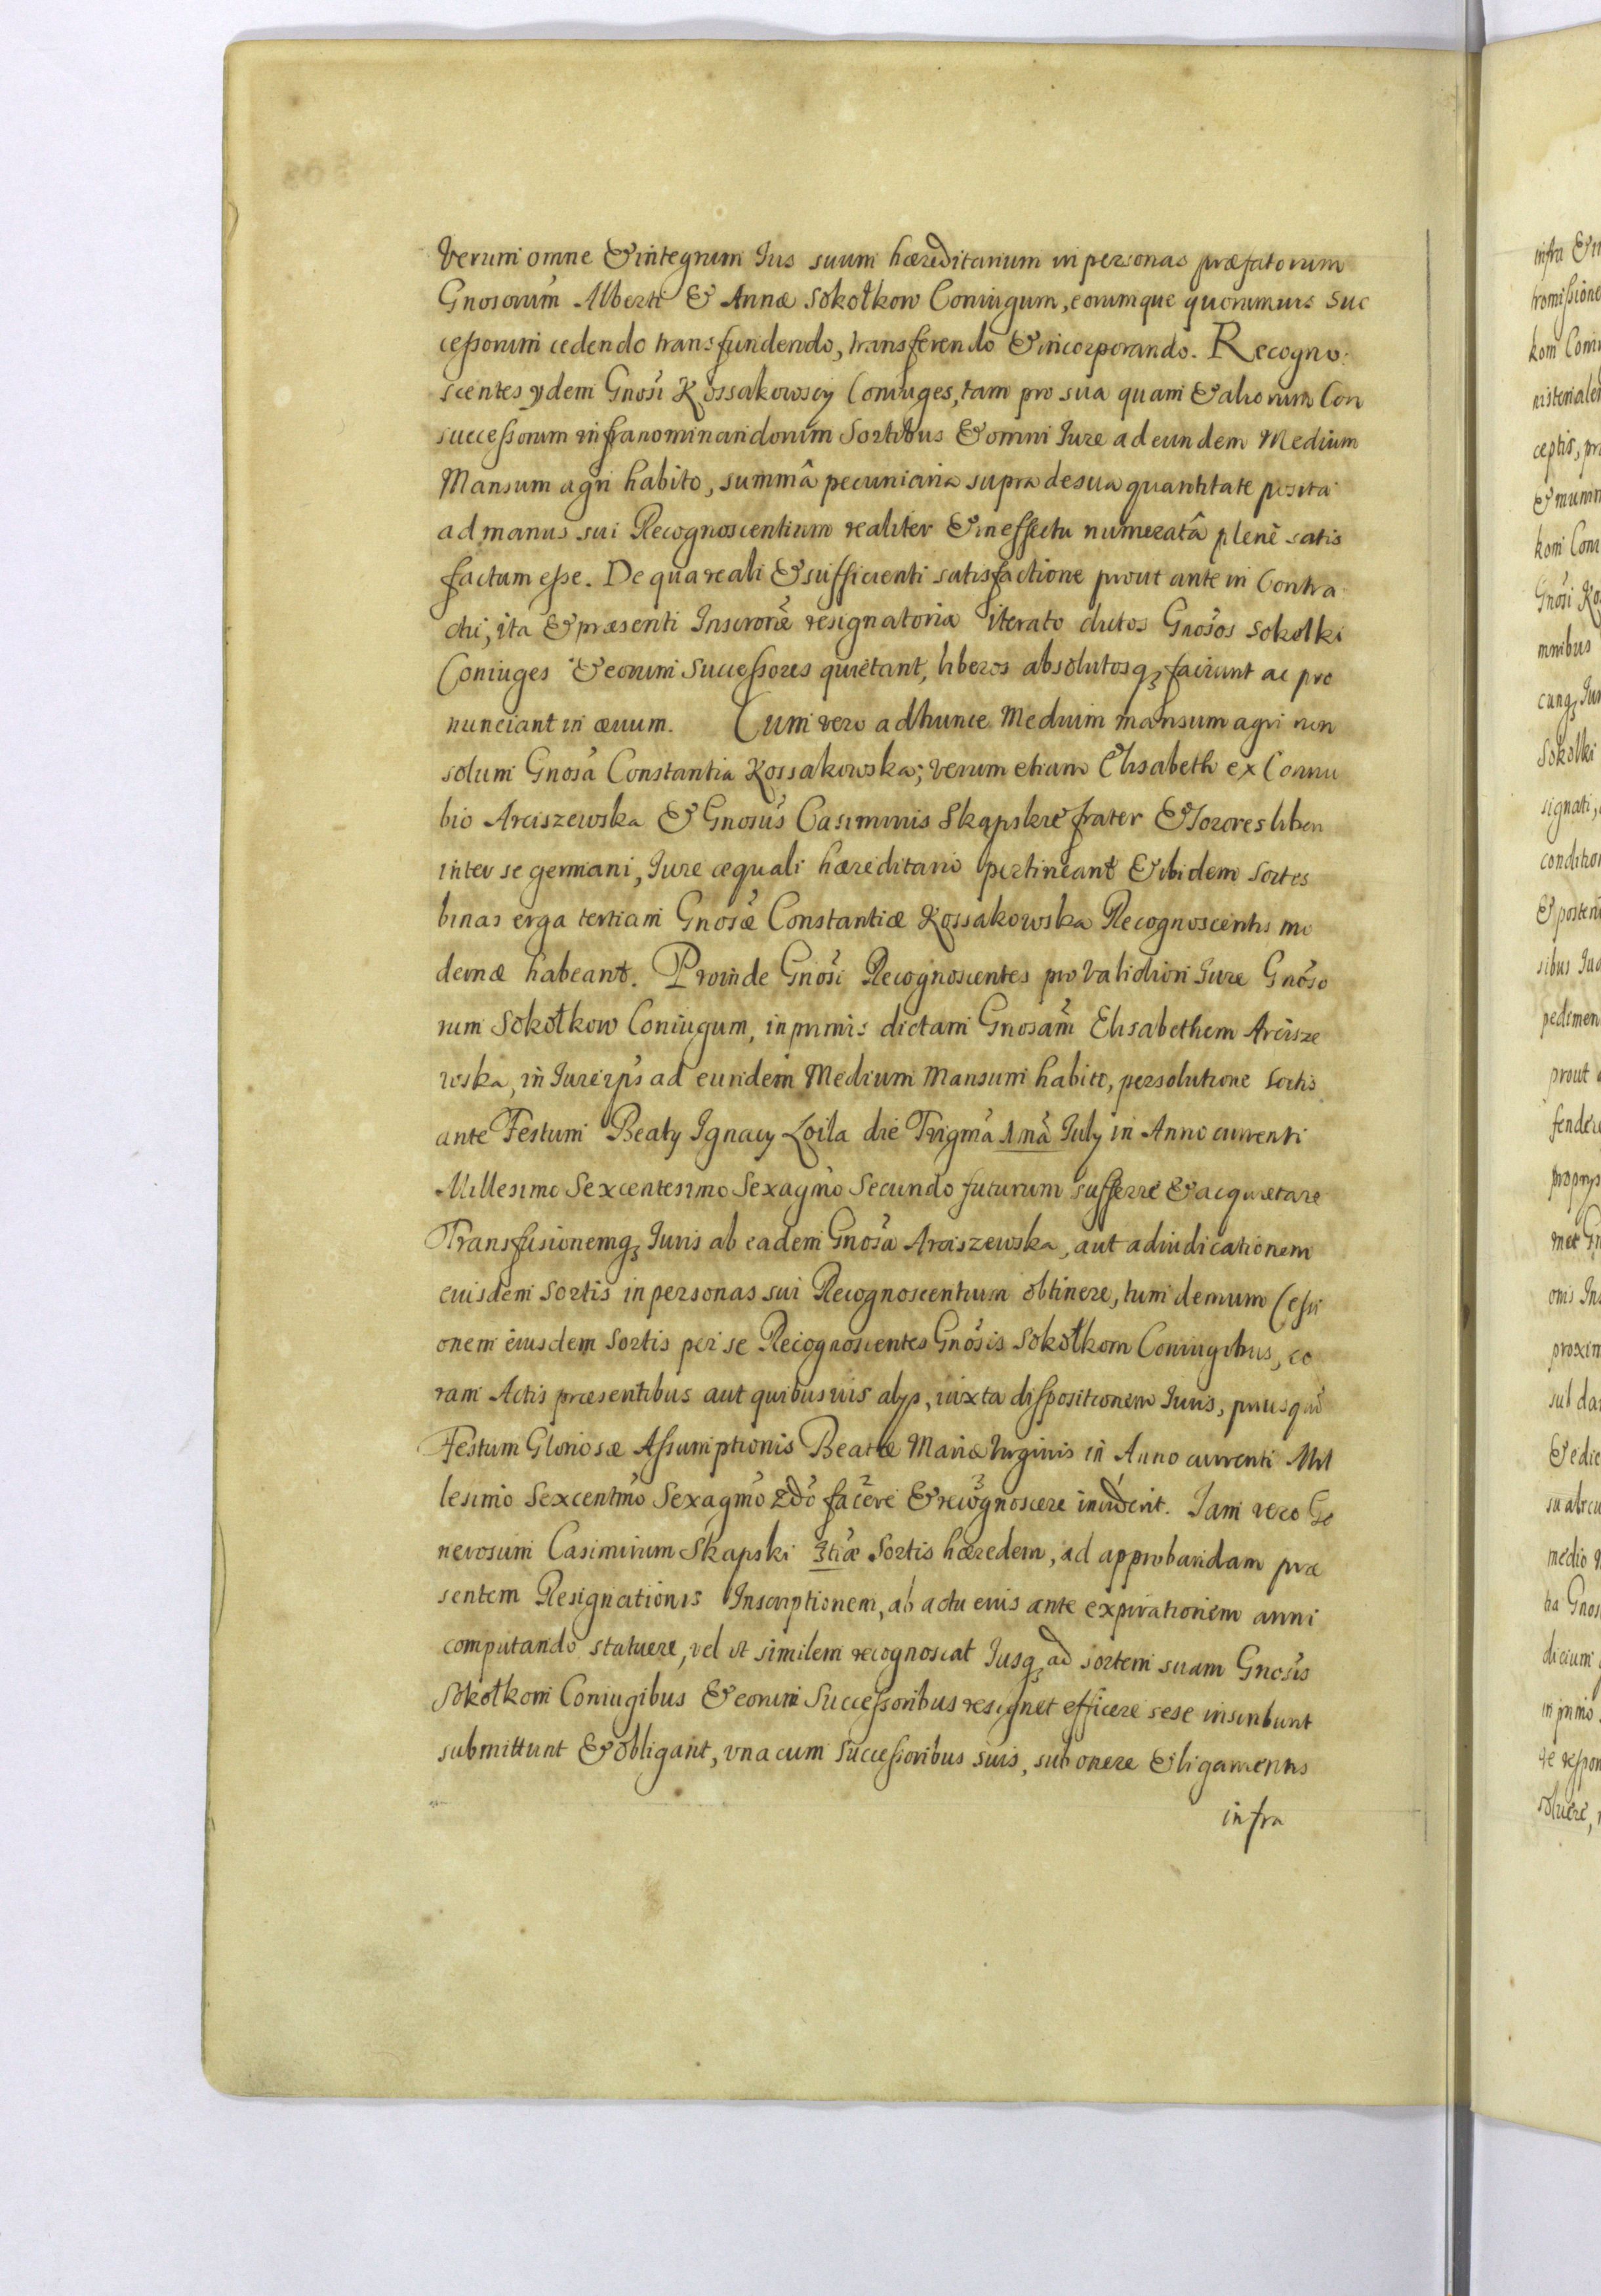 verum omne & integrum Ius suum hæreditarium in personas præfatorum
Gnosorum Alberti & Annæ Sokołkow Coniugum, eorumque quorumuis Suc
cessorum cedendo transfundendo, transferendo & incorporando. Recogno-
scentes ydem Gnosi Kossakowscy Coniuges, tam pro sua quam & aliorum Con
successorum infranominandorum Sortibus & omni Iure ad eundem Medium
Mansum agri habito, summâ pecuniaria supra de sua quantitate posita
ad manus sui Recognoscentium realiter & in effectu numeratâ plenè satis
factum esse. De qua reali & sufficienti satisfactione prout ante in Contra
ctu, ita & præsenti Inscrone resignatoria iterato dictos Gnosos Sokolki
Coniuges & eorum Successores quietant, liberos absolutosq3 faciunt ac pro
nunciant in æuum. Cum vero ad hunce Medium mansum agri non
solum Gnosa Constantia Kossakowska; verum etiam Elisabeth ex Connu
bio Arciszewska & Gnosus Casimirus Skąpskie frater & Sorores liberi
inter se germani, Iure æquali hæreditario pertineant & ibidem Sortes
binas erga tertiam Gnosæ Constantiæ Kossakowska Recognoscentis mo
dernæ habeant. Proinde Gnosi Recognoscentes pro validiori Iure Gnoso
rum Sokołkow Coniugum, inprimis dictam Gnosam Elisabethem Arcisze
wska, in Iure ips ad eundem Medium Mansum habito, persolutione Sortis
ante Festum Beaty Ignacy Loila die Trigma 1mâ July in Anno currenti
Millesimo Sexcentesimo Sexagmo Secundo futurum sufferre & acquietare
Transfusionemq3 Iuris ab eadem Gnosa Arciszewska, aut adiudicationem
eiusdem Sortis in personas sui Recognoscentium obtinere, tum demum Cessi
onem eiusdem Sortis per se Recognoscentes Gnosis Sokołkom Coniugibus, co
ram Actis præsentibus aut quibusuis alys, iuxta dispositionem Iuris, priusqu
Festum Gloriosæ Assumptionis Beatæ Mariæ Virginis in Anno currenti Mil
lesimo Sexcentmo Sexagmo 2do facere & recognoscere Iam vero Ge
nerosum Casimirum Skapski 3tiæ Sortis hæredem, ad approbandam præ
sentem Resignationis Inscriptionem, ab actu eius ante expirationem anni
computando statuere, vel ut similem recognoscat Iusq3 ad sortem suam Gnosis
Sokołkom Coniugibus & eorum Successoribus resignet efficere sese inscribunt
submittunt & obligant, vna cum successoribus suis, sub onere & ligamentis
infra